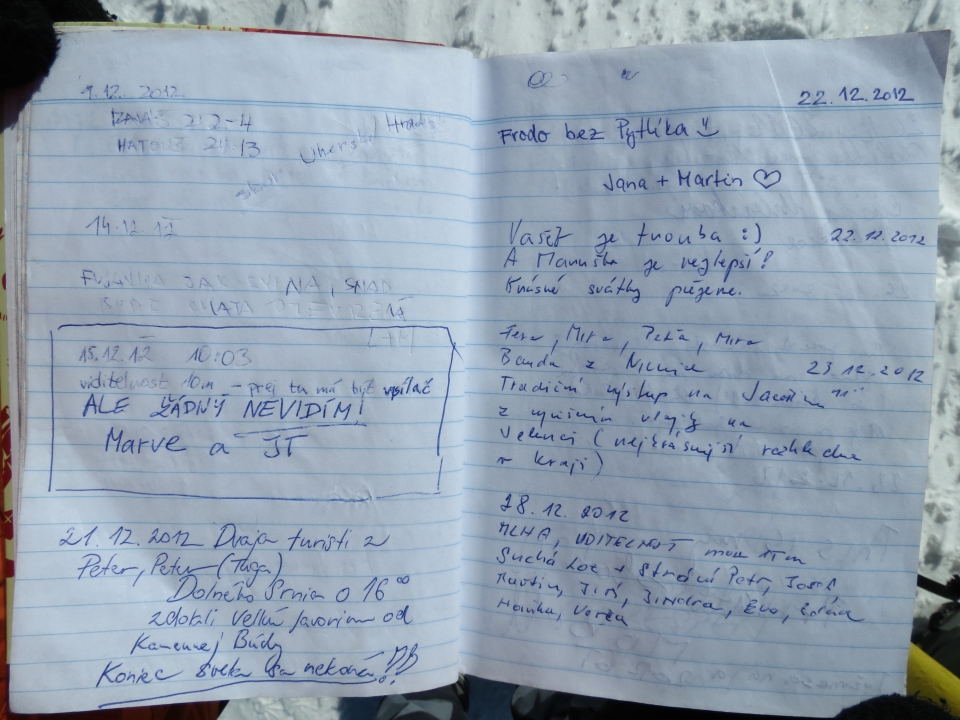 9.12. 2012
14.12.12
FUJAVICA JAK SVINA, SNAD
BUDE CHATA OTEVŘENÁ
15.12.12 10:03
viditelnost 10m - prej tu má být vysílač
ALE ŽÁDNÝ NEVIDÍM!
Marve a JT
21.12.2012 Dvaja turisti z
Peter, Peter (Tuga)
Dolného Srnia o 16⁰⁰
zdolali Veľkú Javorinu od
Kamennej Búdy
Koniec sveta sa nekoná!!
22.12.2012
Frodo bez Pytlíka
Jana + Martin ♡
Vašek je trouba :) 22.12.2012
A Maruška je nejlepší!
Krásné svátky přejeme.
Míra, Petra, Míra
Banda z 23.12.2012
Tradiční výstup na Javořinu
z vlajky na
Jelenci (nejkrásnější rozhledna
v kraji)
28.12.2012
MLHA, VIDITELNOST
Suchá Loz + Strání Petr, Josef,
Martin, Jiří, Jindra, Eva,
Hanka, Verča